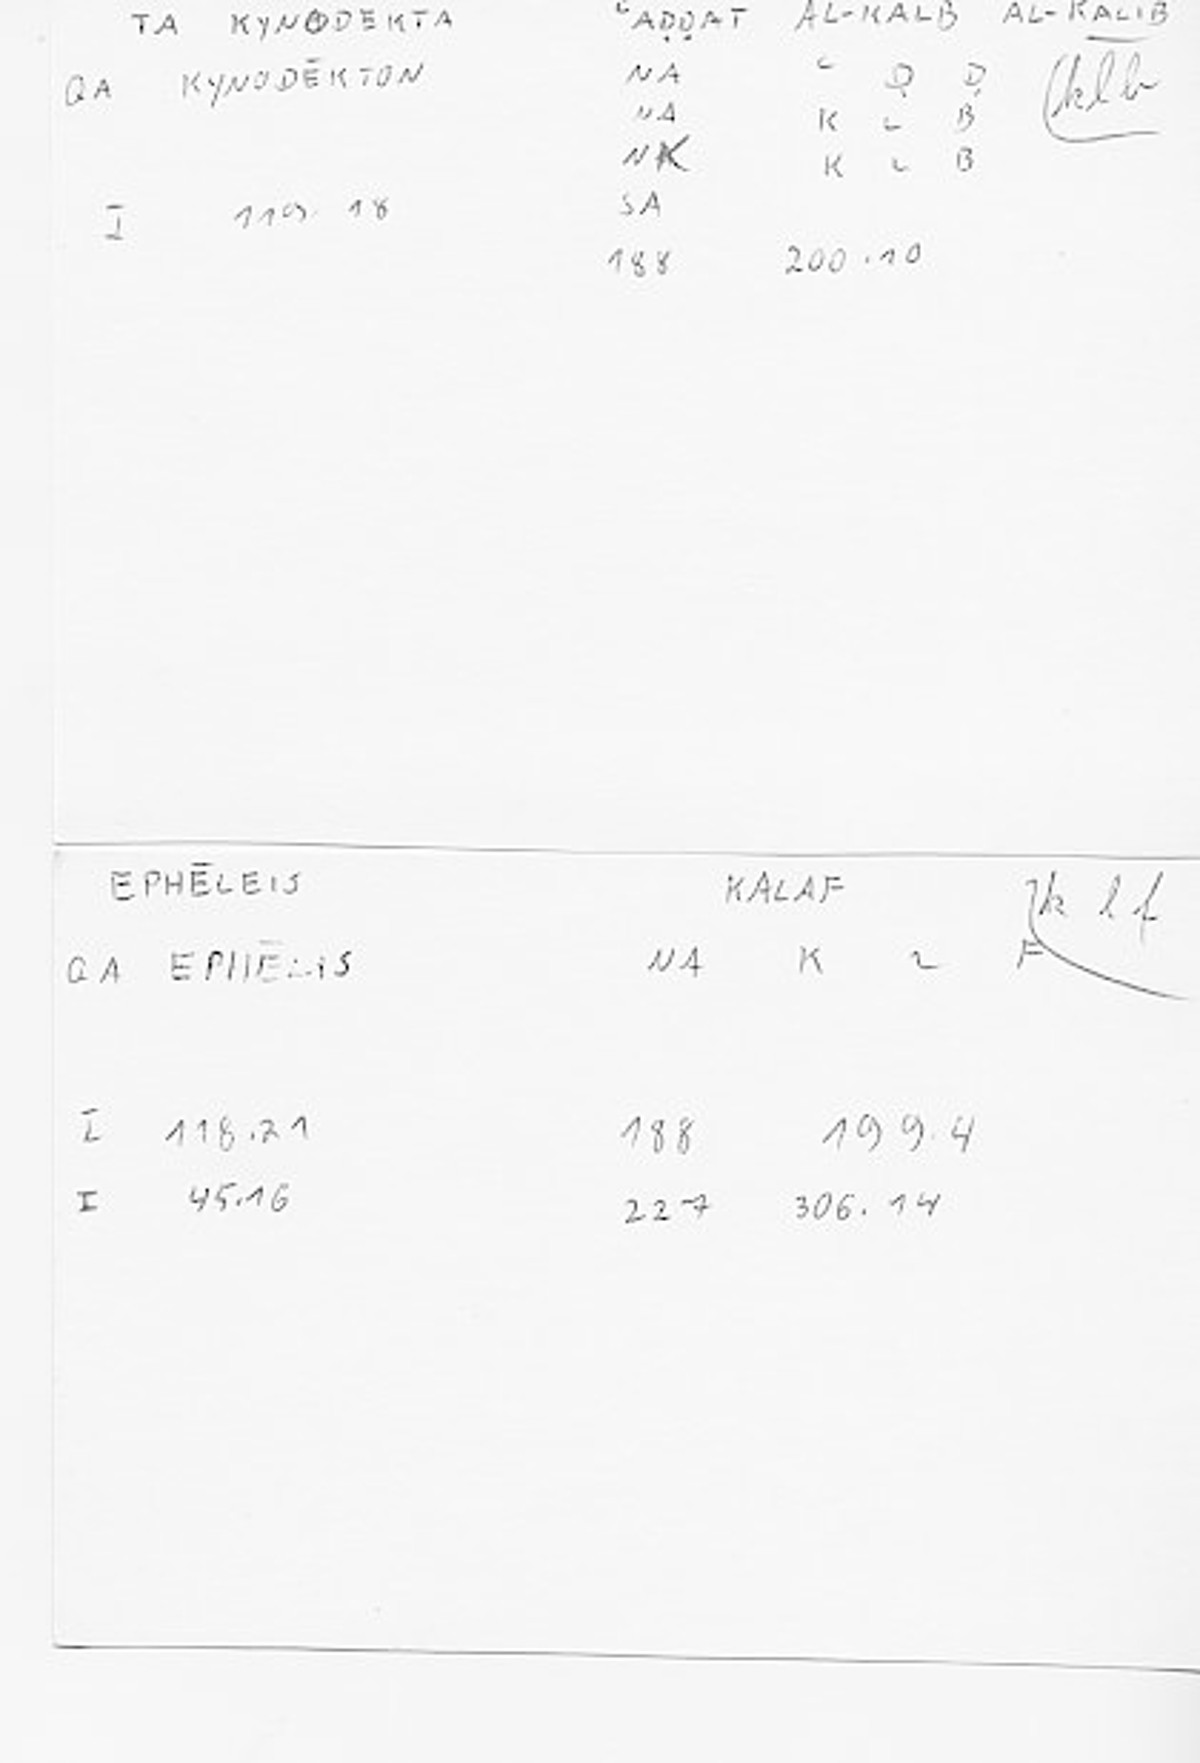 TA KYNODĒKTA ʿAḌḌAT AL-KALB AL-KALIB
QA KYNODĒKTON NA ʿ Ḍ Ḍ klb
NA K L B
NK K L B
I 119.18 SA
188 200.10
EPHĒLEIS KALAF klf
QA EPHĒLIS NA K L F
I 118.21 188 199.4
I 45.16 227 306.14